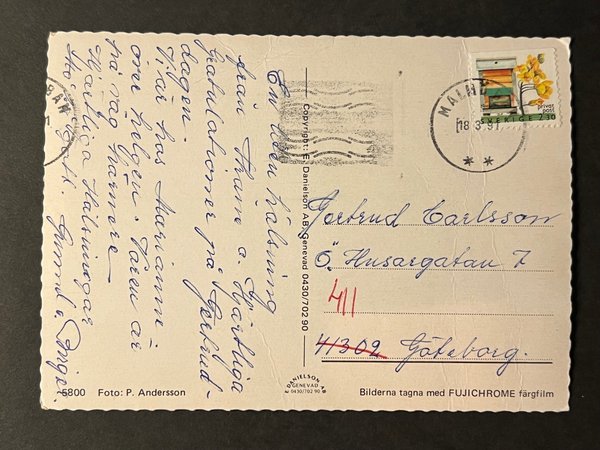 En liten hälsning
från Tham o. Hjärtliga
Gratulationer på Gertrud-
dagen.
Vi är hos Marianne
över helgen. Våren är
på väg närmare
Hjärtliga Hälsningar
Gunnel o. Birger.
Copyright: E. Danielson AB, Genevad 0430/702 90
MALMÖ
18 3. 91
* *
privat
post
SVERIGE 2.30
Gertrud Carlsson
Ö. Husargatan 7
411
41302 Göteborg.
5800 Foto: P. Andersson
DANIELSON AB
GENEVAD
0430/702 90
Bilderna tagna med FUJICHROME färgfilm